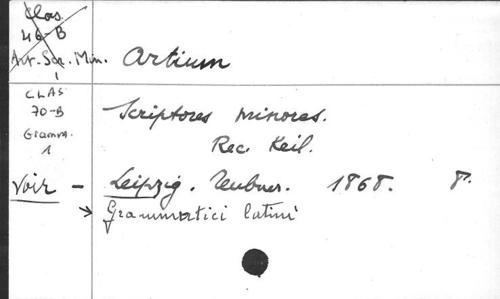 Clas
46-B
Art. Scr. Min. Artium
CLAS
70-B
Gramm.
1
Scriptores minores.
Rec. Keil.
Voir - Leipzig. Teubner. 1868. 8°.
→ Grammatici latini